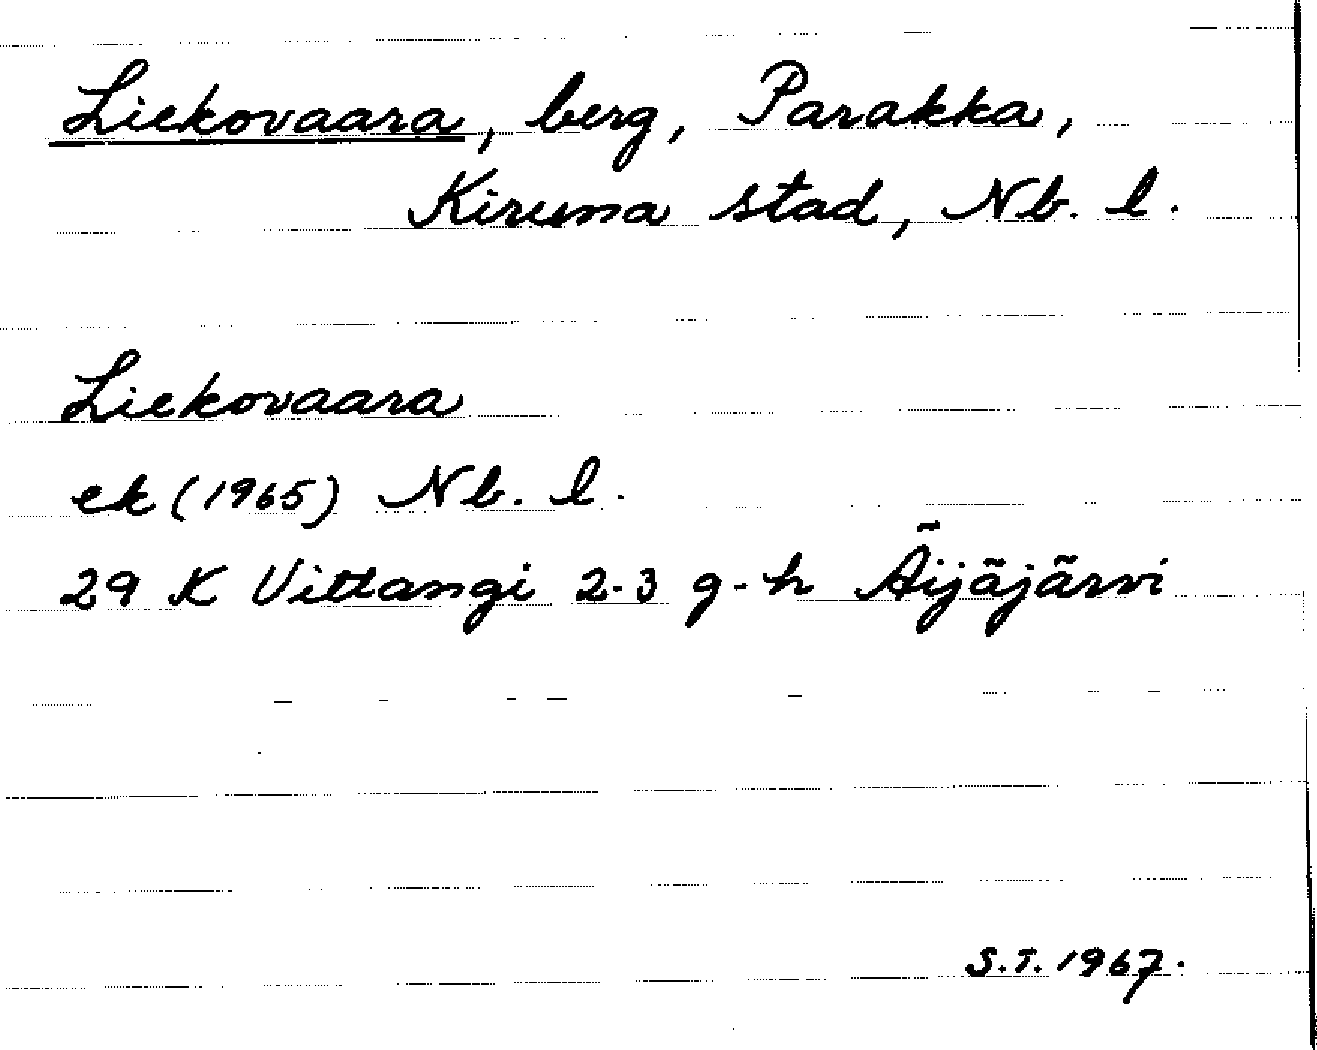 Liekovaara, berg, Parakka,
Kiruna stad, Nb. l.
Liekovaara
ek (1965) Nb. l.
29 K Vittangi 2-3 g-h Äijäjärvi
S.T. 1967.